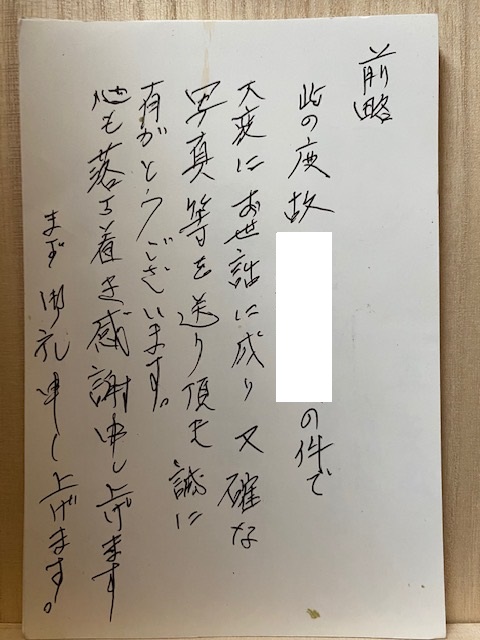 前略
此の度故
の件で
大変にお世話に成り又確な
写真等を送り頂き誠に
有がとうございます。
心も落ち着き感謝申し上げます
まず御礼申し上げます。